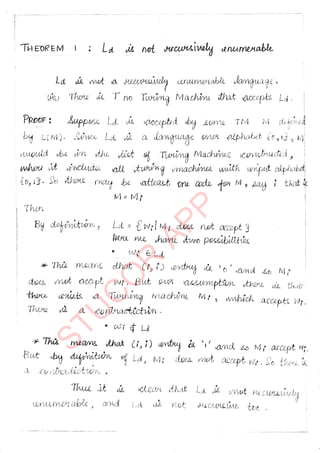 THEOREM 1 : Ld is not recursively enumerable
Ld is not a recursively enumerable language.
(ie) There is no Turing Machine that accepts Ld.
PROOF : Suppose Ld is accepted by some TM M defined
by L(M). Since Ld is a language over alphabet {0,1}, M
would be in the list of Turing Machines constructed,
where it includes all turing machines with input alphabet
{0,1}. So there may be atleast one code for M, say i that is
M = Mi
Then
By definition, Ld = { wi | Mi does not accept }
here we have two possibilities
• wi ∈ Ld
* This means that (i, i) entry is '0' and so Mi
does not accept wi. But our assumption there is that
there exists a Turing machine Mi, which accepts wi.
There is a contradiction.
• wi ∉ Ld
* This means that (i, i) entry is '1' and so Mi accept wi.
But by definition of Ld, Mi does not accept wi. So there is
a contradiction.
Thus it is clear that Ld is not recursively
enumerable, and Ld is not recursive too.
STUCOR APP